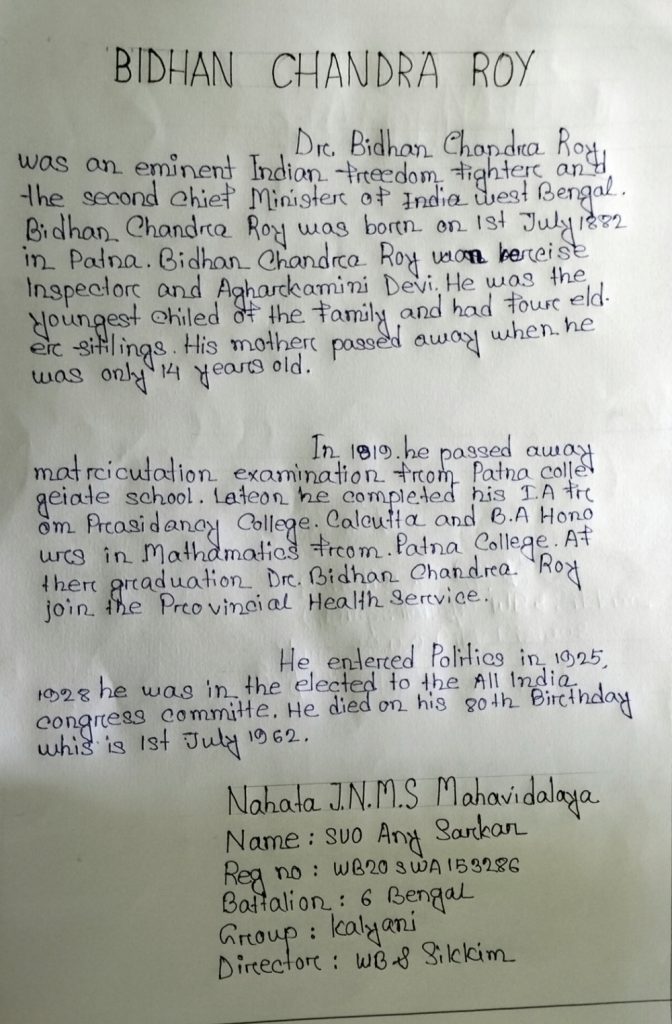 BIDHAN CHANDRA ROY
Drc. Bidhan Chandrca Roy,
was an eminent Indian freedom fighterc and
the second chief Ministerc of India west Bengal.
Bidhan Chandrca Roy was borcn on 1st July 1882
in Patna. Bidhan Chandrca Roy berceise
Inspectorc and Agharckamini Devi. He was the
youngest chiled of the family and had fourc eld-
erc sitilings. His motherc passed away when he
was only 14 yearcs old.
In 1819. he passed away
matrciculation examination frcom Patna colle
geiate school. Lateon he completed his I.A frc
om Prcasidancy College. Calcutta and B.A Hono
urcs in Mathamatics frcom. Patna College. Af
therc grcaduation Drc. Bidhan Chandrca Roy
join the Prcovincial Health Serrvice.
He enterced Politics in 1925,
1928 he was in the elected to the All India
congrcess committe. He died on his 80th Bircthday
whis is 1st July 1962.
Nahata J.N.M.S Mahavidalaya
Name : SUO Any Sarkar
Reg no : WB20SWA153286
Battalion : 6 Bengal
Grcoup : Kalyani
Dircectorc : WB & Sikkim